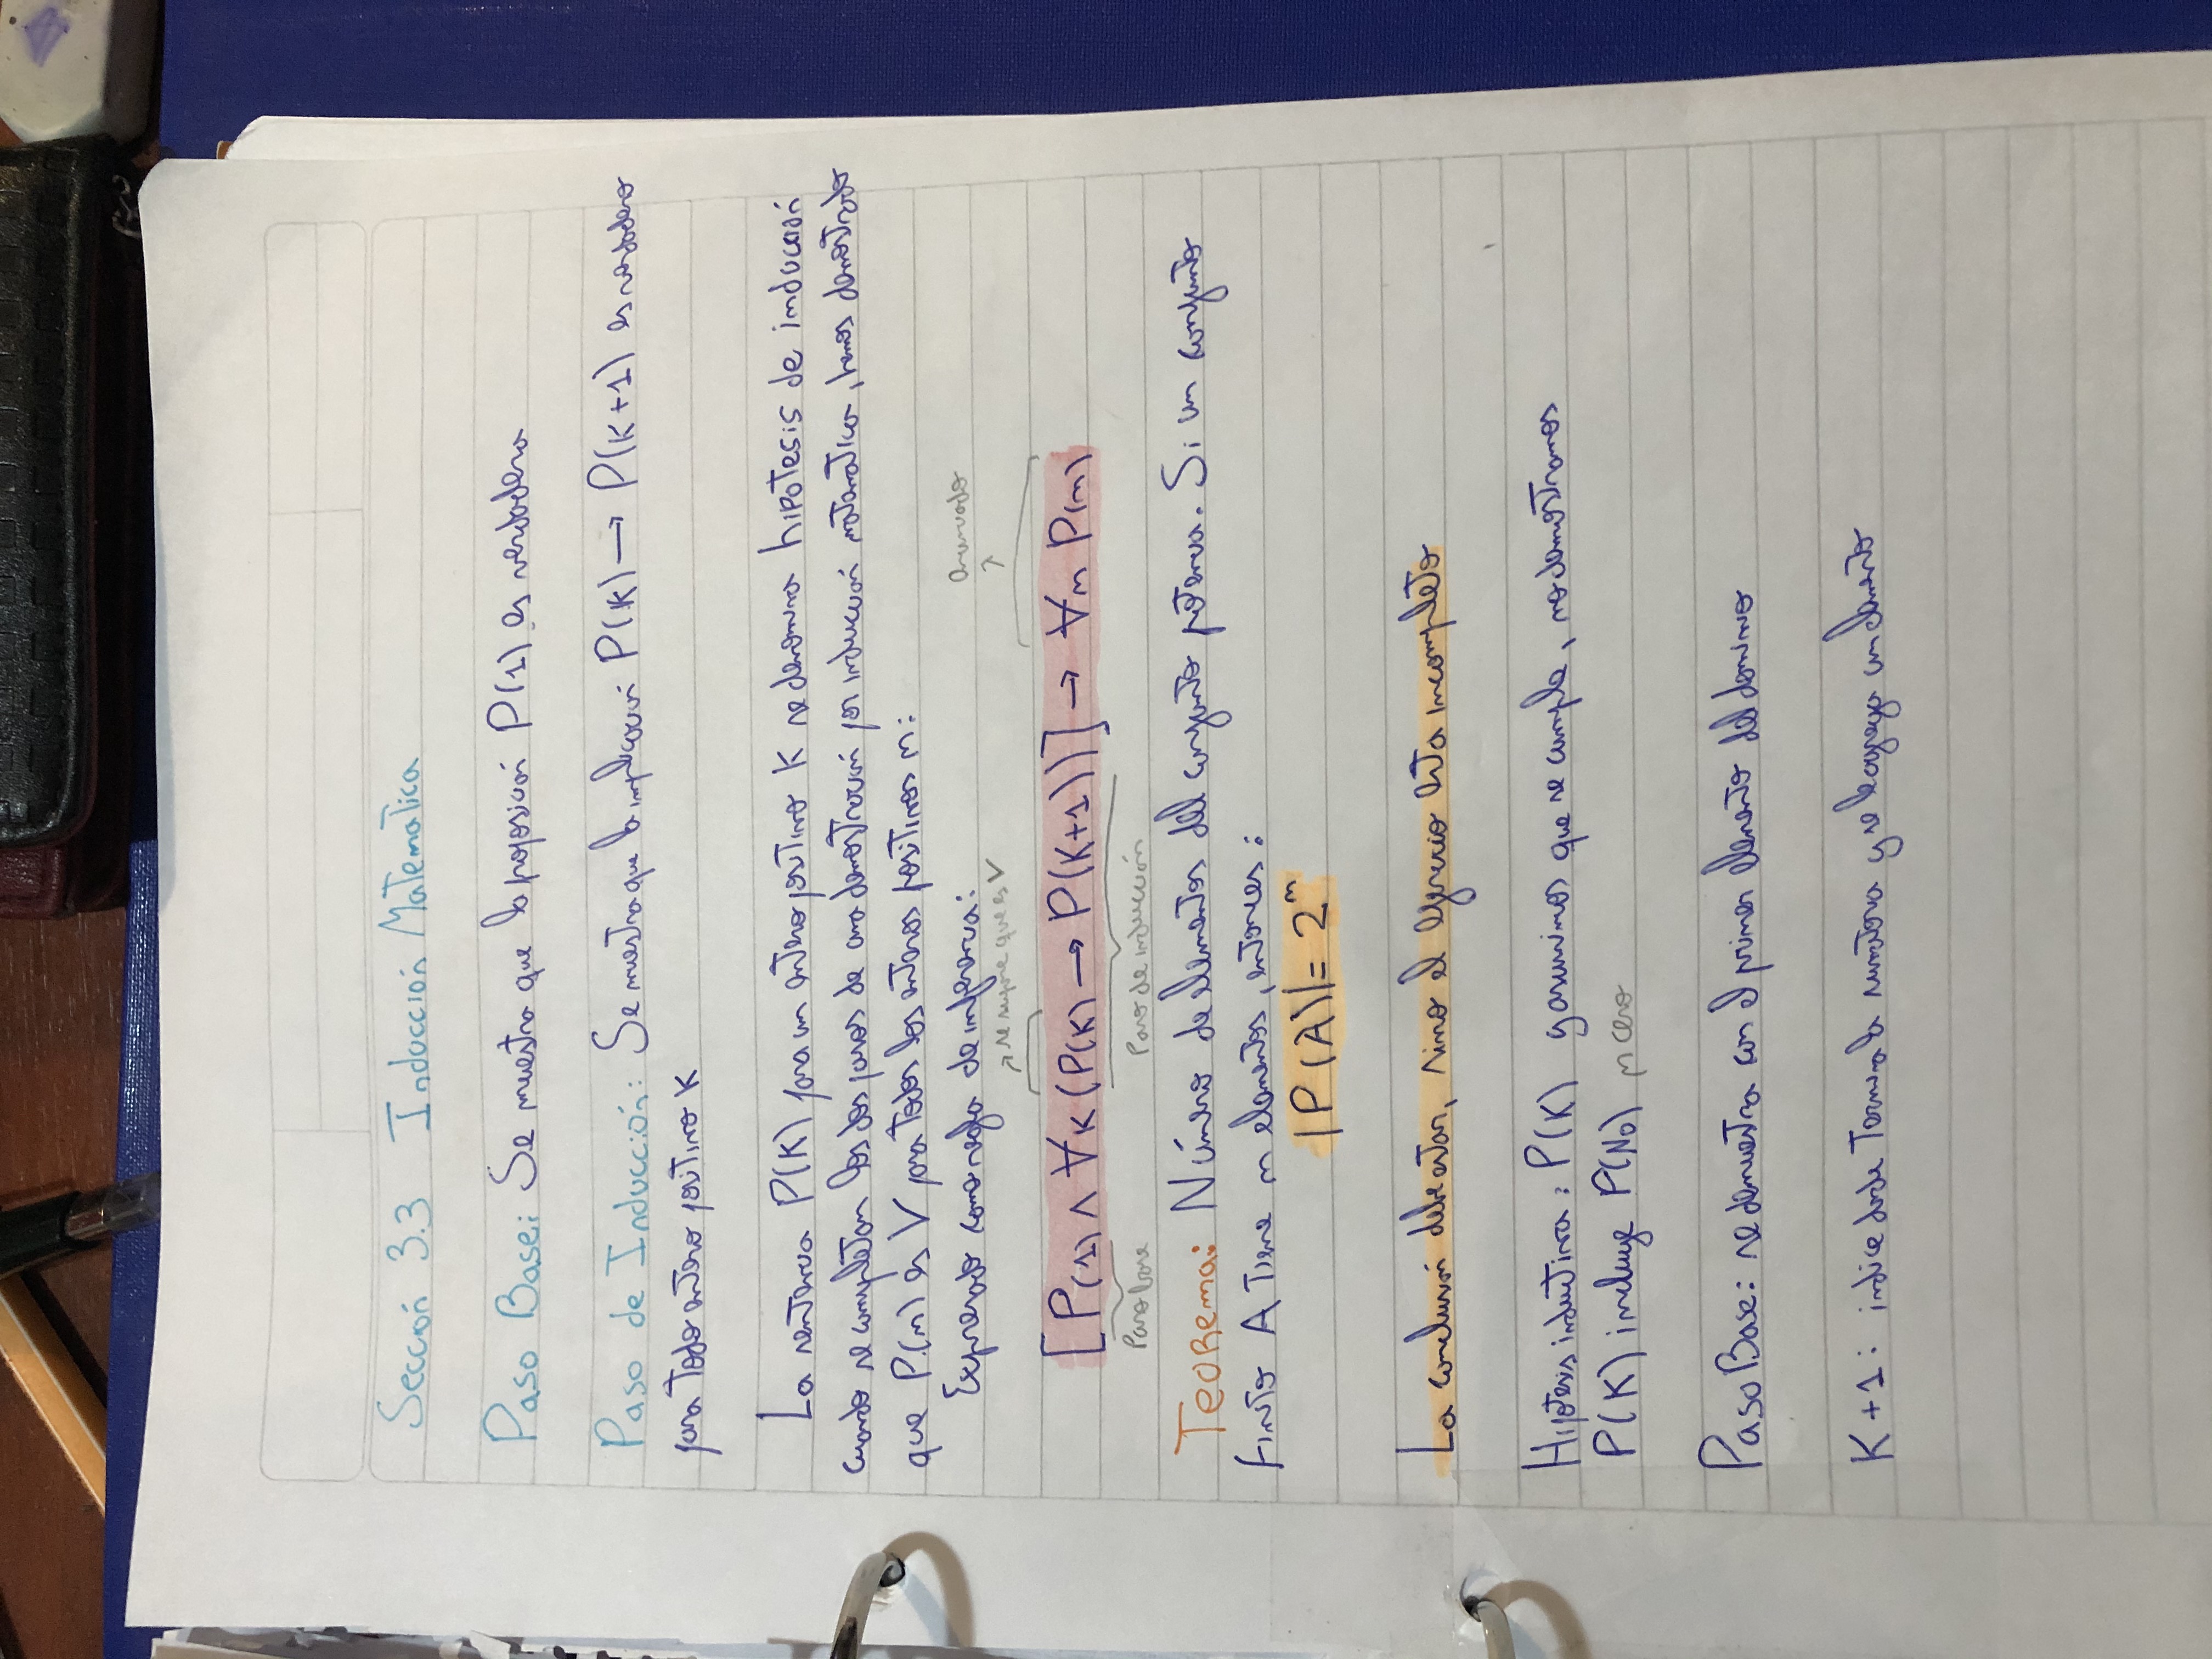 Sección 3.3 Inducción Matematica
Paso Base: Se muestra que la proposición P(1) es verdadera
Paso de Inducción: Se muestra que la implicación P(K) → P(K+1) es verdadero
para todo entero positivo K
La sentencia P(K) para un entero positivo K se denomina hipótesis de inducción
cuando se completan los dos pasos de una demostración por inducción matemática, hemos demostrado
que P(n) es V para todos los enteros positivos n:
Expresado como regla de inferencia:
enunciado
↗ se supone que es V ↑
[P(1) ∧ ∀K (P(K) → P(K+1))] → ∀n P(n)
Paso base Paso de inducción
Teorema: Número de elementos del conjunto potencia. Si un conjunto
finito A tiene n elementos, entonces:
|P(A)| = 2ⁿ
La conclusión debe estar, sino el ejercicio esta incompleto
Hipótesis inductiva: P(K) y asumimos que se cumple, no demostramos
P(K) incluye P(N₀) n cero
Paso Base: se demuestra con el primer elemento del dominio
K+1: indice donde termina la sumatoria y se le agrega un elemento